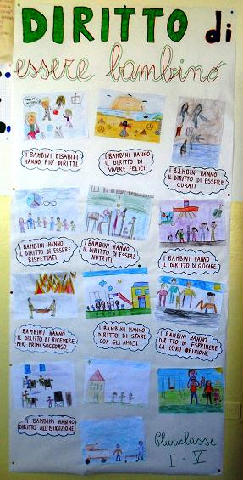 DIRITTO di
essere bambino
I BAMBINI DISABILI
HANNO PIÙ DIRITTI
I BAMBINI HANNO
IL DIRITTO DI
VIVERE FELICI
I BAMBINI HANNO
IL DIRITTO DI ESSERE
CURATI
I BAMBINI HANNO
IL DIRITTO DI ESSERE
RISPETTATI
I BAMBINI HANNO
IL DIRITTO DI ESSERE
NUTRITI
I BAMBINI HANNO
IL DIRITTO DI GIOCARE
I BAMBINI HANNO
IL DIRITTO DI RICEVERE
PER PRIMI SOCCORSO
I BAMBINI HANNO
DIRITTO DI STARE
CON GLI AMICI
I BAMBINI HANNO
DIRITTO DI ESPRIMERE
LA LORO OPINIONE
I BAMBINI HANNO
DIRITTO ALL'ISTRUZIONE
Pluriclasse
I - V